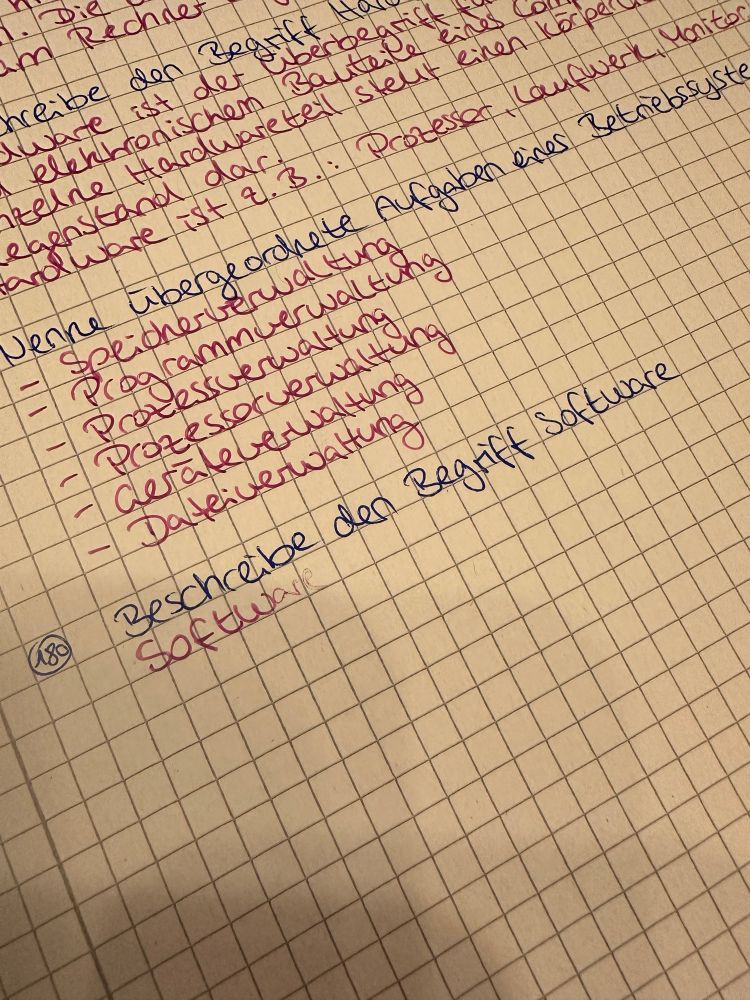 . Die
am Rechner
chreibe den Begriff Hard
dware ist der Überbegriff für
elektronischen Bauteile eines Comp
nzelne Hardwareteil stellt einen körper
egenstand dar.
ardware ist z.B.: Prozessor, Laufwerk, Monitor
Nenne übergeordnete Aufgaben eines Betriebssyste
- Speicherverwaltung
- Programmverwaltung
- Prozessverwaltung
- Prozessorverwaltung
- Geräteverwaltung
- Dateiverwaltung
180 Beschreibe den Begriff Software
Software